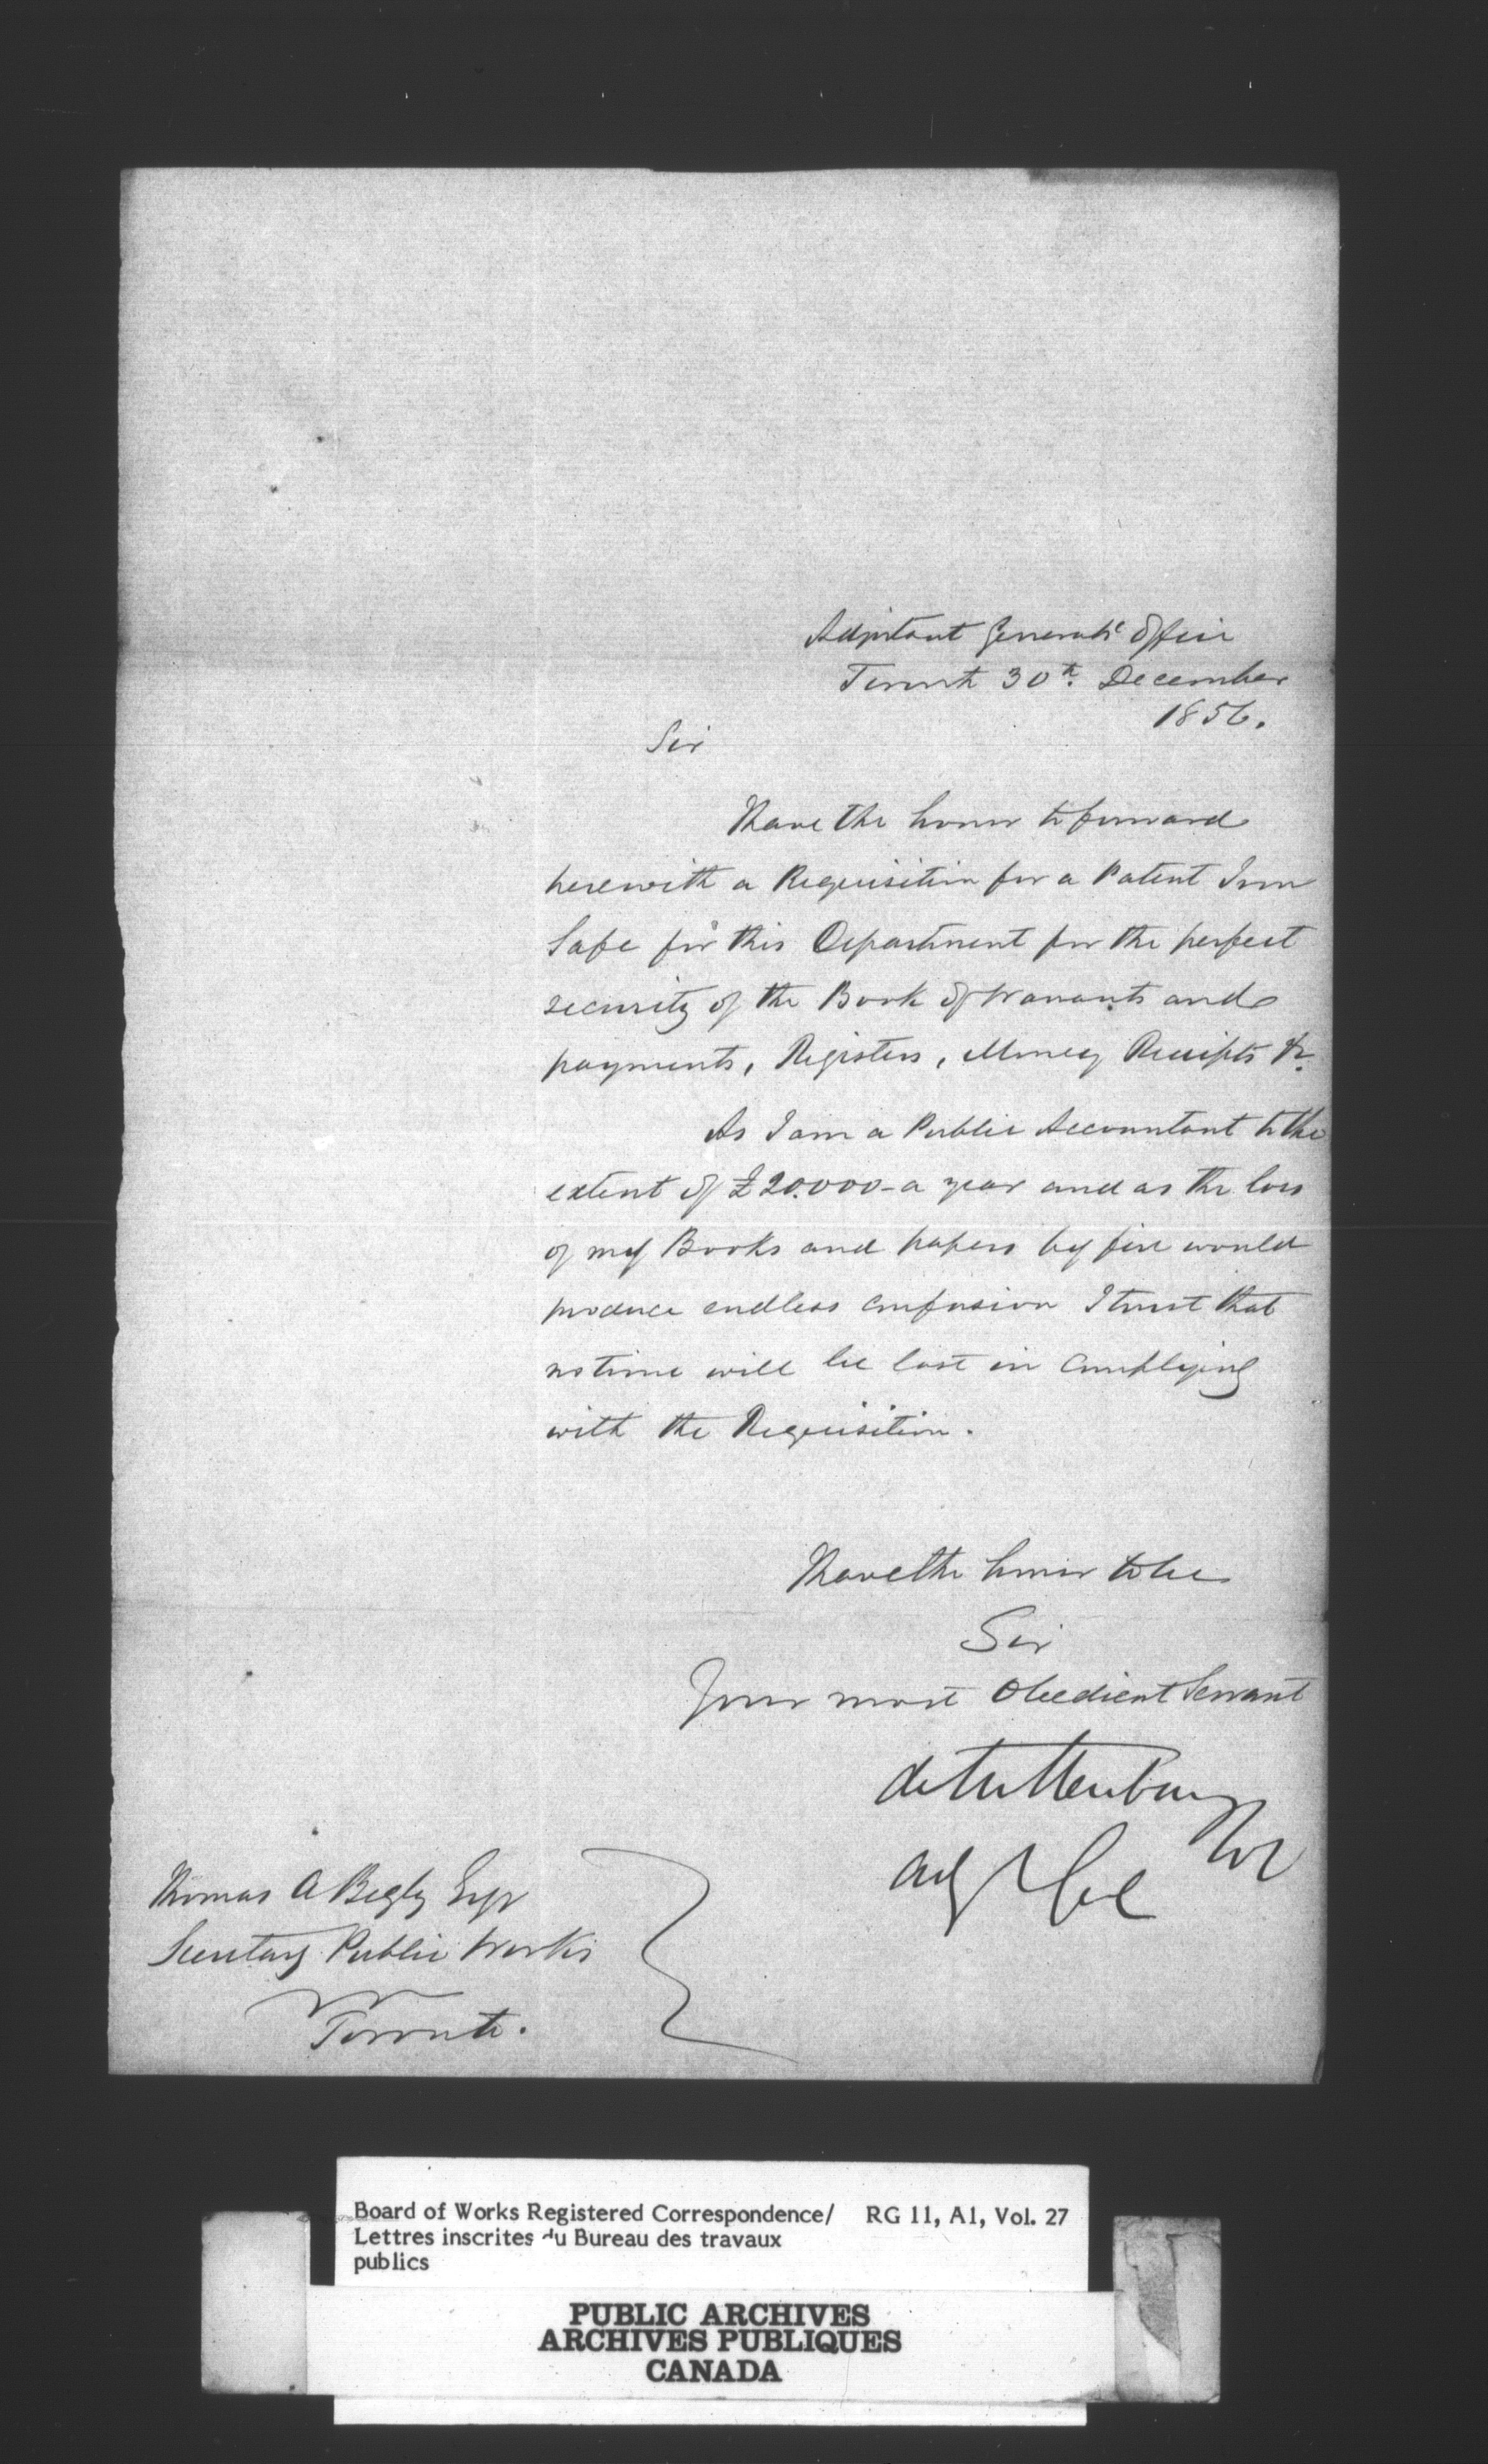 Adjutant General's Office
Toronto 30th. December
1856.
Sir
I have the honor to forward
herewith a Requisition for a Patent Iron
Safe for this Department for the perfect
security of the Book of Warrants and
payments, Registers, Money Receipts &c.
As I am a Public Accountant to the
extent of £20.000 - a year and as the loss
of my Books and papers by fire would
produce endless confusion I trust that
no time will be lost in complying
with the Requisition.
I have the honor to be
Sir
Your most Obedient Servant
de Rottenburg Col
Thomas A Begly Esqr
Secretary Public Works
Toronto.
Board of Works Registered Correspondence/ RG 11, A1, Vol. 27
Lettres inscrites du Bureau des travaux
publics
PUBLIC ARCHIVES
ARCHIVES PUBLIQUES
CANADA